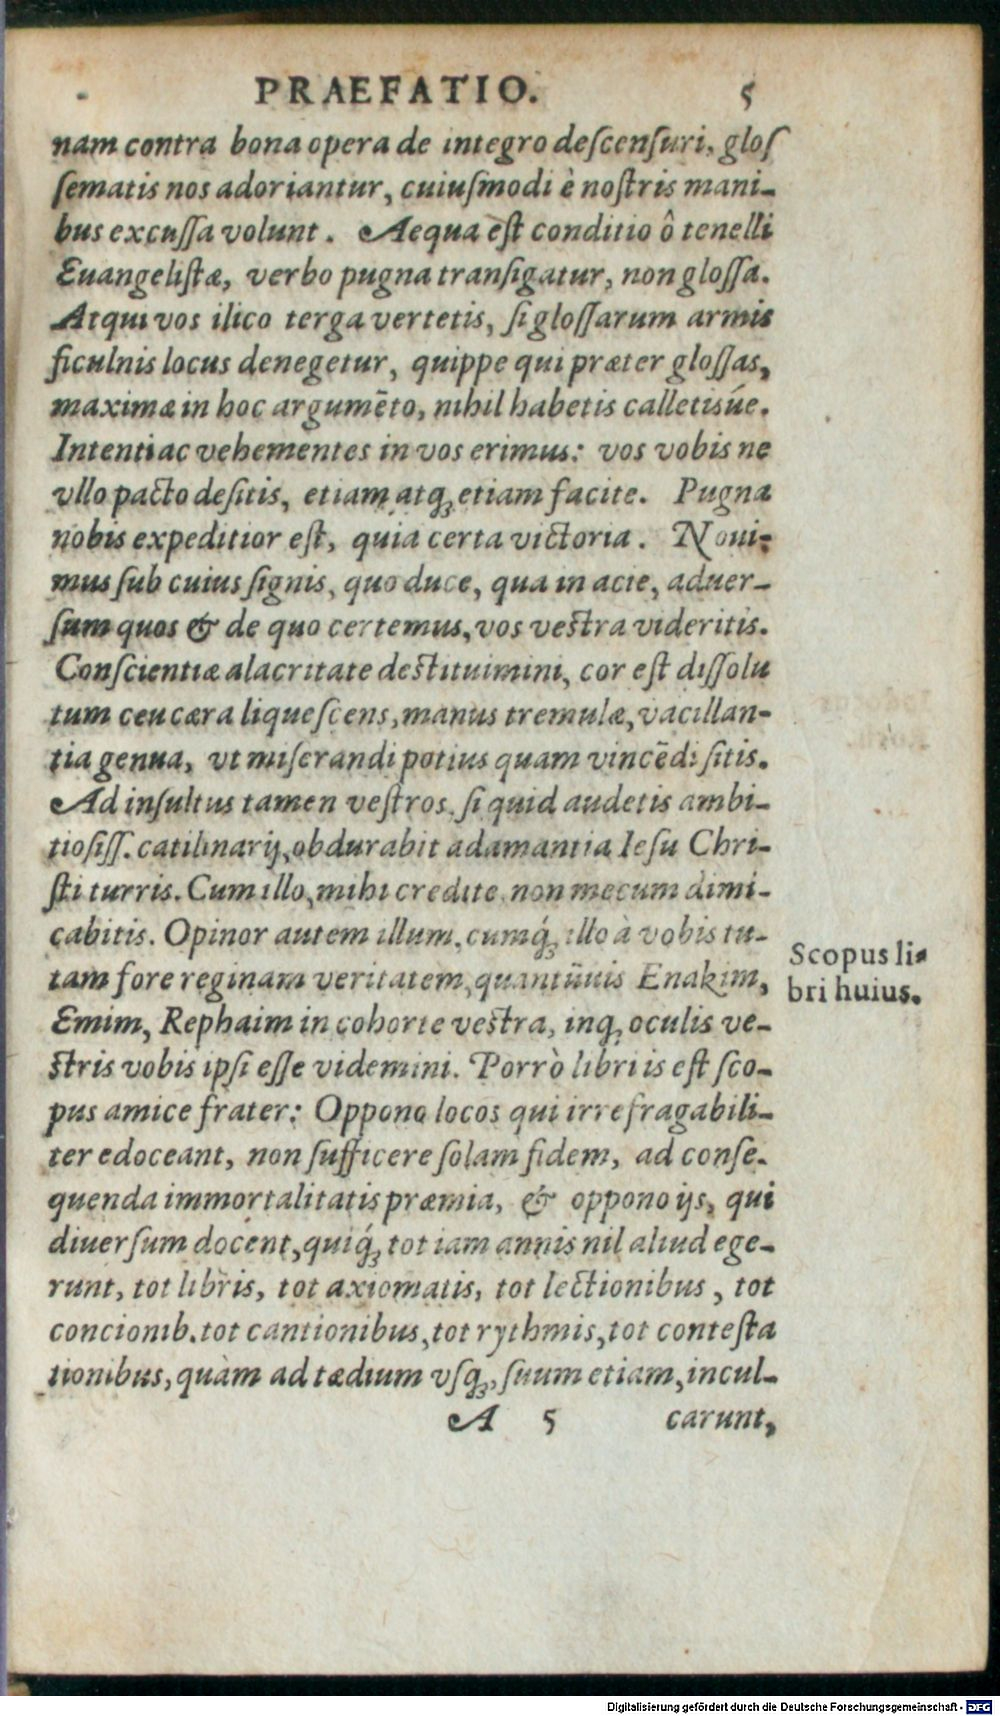 PRAEFATIO. 5
nam contra bona opera de integro deſcenſuri, gloſ
ſematis nos adoriantur, cuiuſmodi è noſtris mani-
bus excuſſa volunt. Aequa eſt conditio ô tenelli
Euangeliſtæ, verbo pugna tranſigatur, non gloſſa.
Atqui vos ilico terga vertetis, ſi gloſſarum armis
ficulnis locus denegetur, quippe qui præter gloſſas,
maximæ in hoc argumēto, nihil habetis calletisúe.
Intenti ac vehementes in vos erimus: vos vobis ne
vllo pacto deſitis, etiam atq; etiam facite. Pugna
nobis expeditior eſt, quia certa victoria. Noui-
mus ſub cuius ſignis, quo duce, qua in acie, aduer-
ſum quos & de quo certemus, vos veſtra videritis.
Conſcientiæ alacritate deſtituimini, cor eſt diſſolu
tum ceu cæra liqueſcens, manus tremulæ, vacillan-
tia genua, vt miſerandi potius quam vincēdi ſitis.
Ad inſultus tamen veſtros, ſi quid audetis ambi-
tioſiſſ. catilinarij, obdurabit adamantia Ieſu Chri-
ſti turris. Cum illo, mihi credite, non mecum dimi-
cabitis. Opinor autem illum, cumq́; illo à vobis tu-
tam fore reginam veritatem, quantūuis Enakim,
Emim, Rephaim in cohorte veſtra, inq; oculis ve-
ſtris vobis ipſi eſſe videmini. Porrò libri is eſt ſco-
pus amice frater: Oppono locos qui irrefragabili-
ter edoceant, non ſufficere ſolam fidem, ad conſe-
quenda immortalitatis præmia, & oppono ijs, qui
diuerſum docent, quiq́; tot iam annis nil aliud ege-
runt, tot libris, tot axiomatis, tot lectionibus, tot
concionib. tot cantionibus, tot rythmis, tot conteſta
tionibus, quàm ad tædium vſq;, ſuum etiam, incul-
A 5 carunt,
Scopus li-
bri huius.
Digitalisierung gefördert durch die Deutsche Forschungsgemeinschaft - DFG